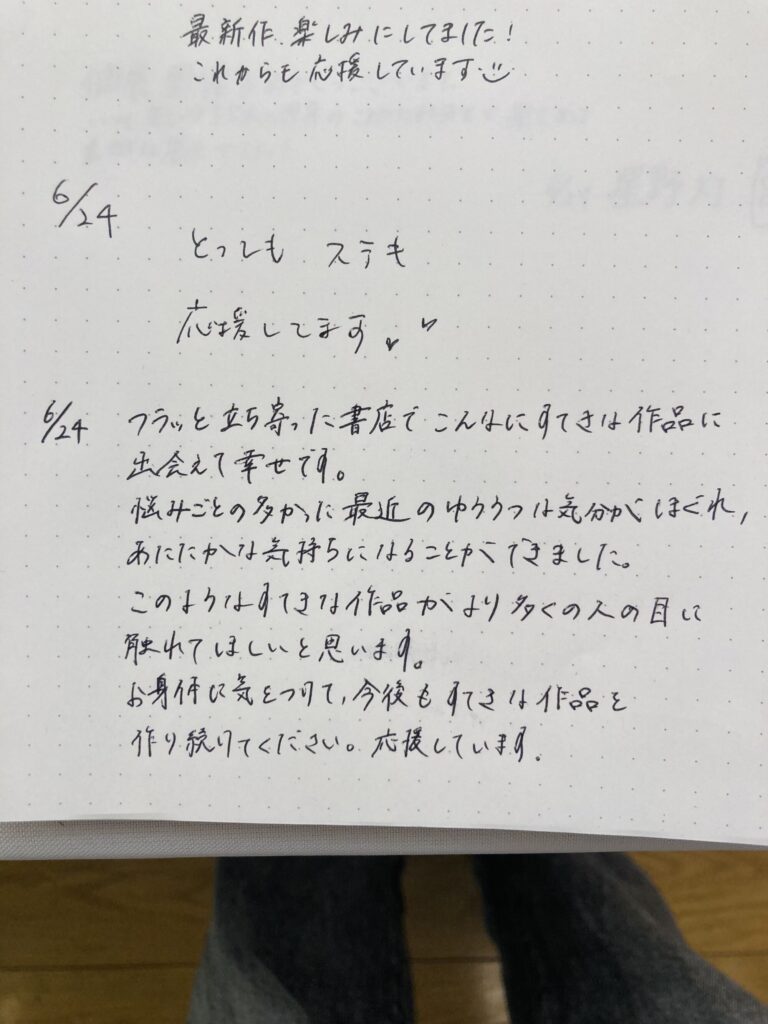 最新作、楽しみにしてました！
これからも応援しています
6/24
とっしも ステキ
応援してます
6/24 フラッと立ち寄った書店でこんなにすてきな作品に
出会えて幸せです。
悩みごとの多かった最近のゆううつな気分がほぐれ,
あたたかな気持ちになることができました。
このようなすてきな作品がより多くの人の目に
触れてほしいと思います。
お身体に気をつけて,今後もすてきな作品を
作り続けてください。応援しています.